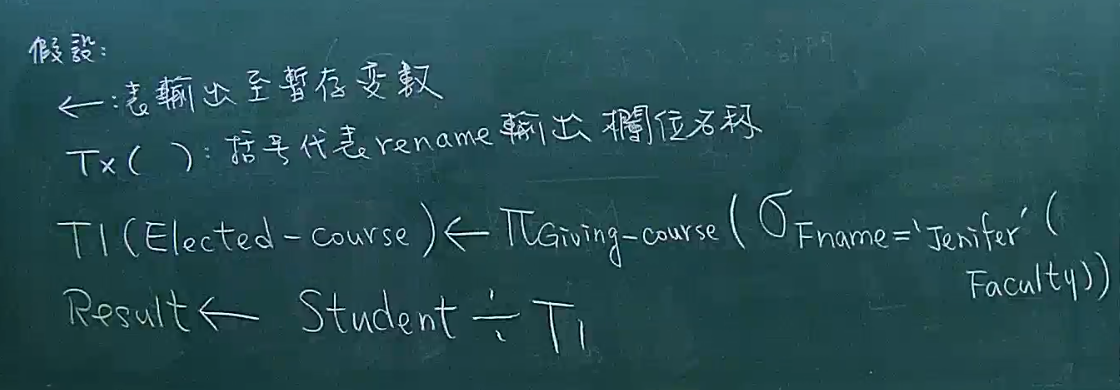 假設:
←:表輸出至暫存変数
Tx( ): 括号代表rename輸出欄位名称
T1(Elected-course)← πGiving-course(σFname='Jenifer'(
Faculty))
Result← Student ÷ T1